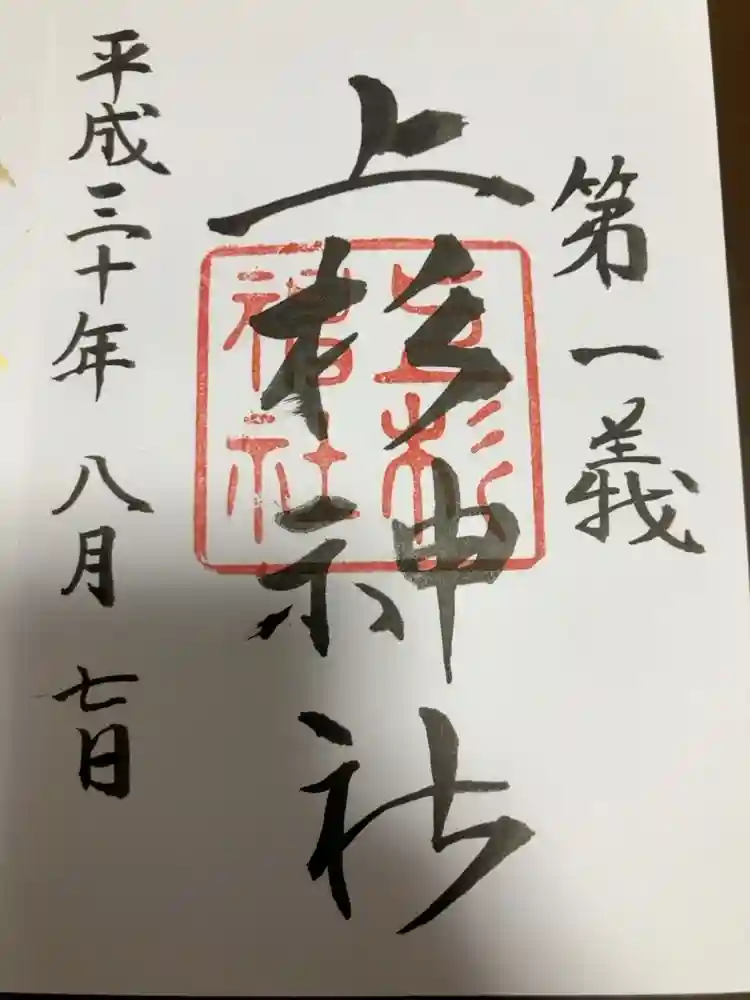 第一義
上杉神社
上杉
神社
平成三十年 八月 七日